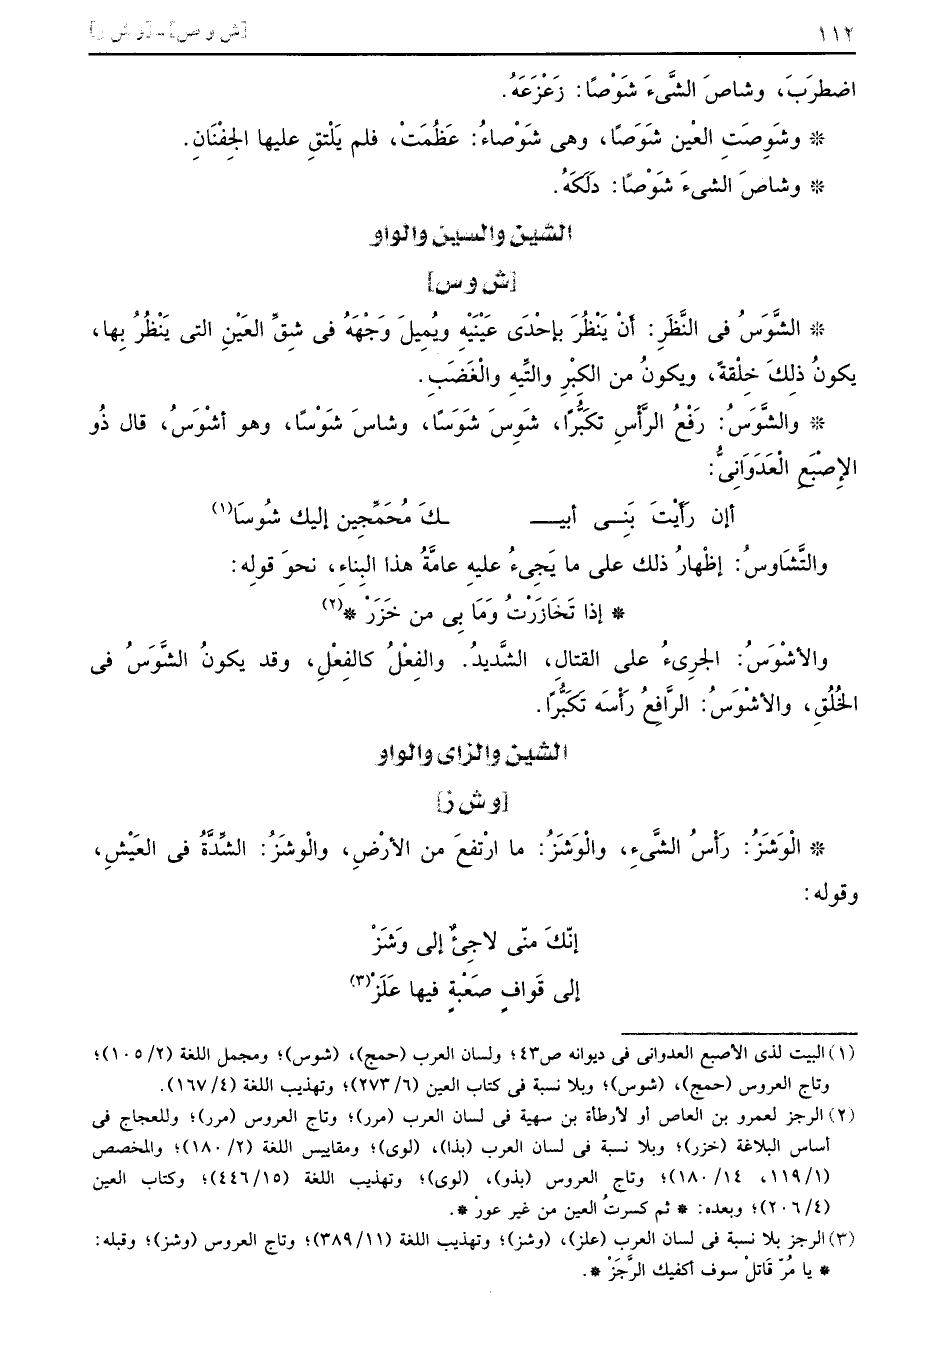 ١١٢ [ش و ص] - [و ش ز]
اضطرَبَ، وشاصَ الشَّىءَ شَوْصًا: زَعْزَعَهُ.
* وشَوِصَتِ العيْن شَوَصًا، وهى شَوْصاءُ: عَظُمَتْ، فلم يَلْتقِ عليها الجِفْنَانِ.
* وشاصَ الشىءَ شَوْصًا: دَلَكَهُ.
الشين والسين والواو
[ش و س]
* الشَّوَسُ فى النَّظَرِ: أنْ يَنْظُرَ بإحْدَى عَيْنَيْهِ ويُمِيلَ وَجْهَهُ فى شقِّ العَيْنِ التى يَنْظُرُ بِها،
يكونُ ذلِكَ خِلْقةً، ويكونُ من الكِبْرِ والتِّيهِ والْغَضَبِ.
* والشَّوَسُ: رَفْعُ الرَّأْسِ تكَبُّرًا، شَوِسَ شَوَسًا، وشاسَ شَوْسًا، وهو أشْوَسُ، قال ذُو
الإصْبَعِ الْعَدَوَانِىُّ:
أإن رَأَيْتَ بَنِــى أبيــــ ـــكَ مُحَمِّجِين إليك شُوسَا(١)
والتَّشَاوسُ: إظْهارُ ذلك على ما يَجِىءُ عليهِ عامَّةُ هذا البِناءِ، نحوَ قولِه:
* إذا تَخَازَرْتُ وَمَا بِى من خَزَرْ *(٢)
والأشْوَسُ: الجرِىءُ على القتالِ، الشَّديدُ. والفِعْلُ كالفِعْلِ، وقد يكونُ الشَّوَسُ فى
الخُلُقِ، والأشْوَسُ: الرَّافِعُ رَأْسَه تَكَبُّرًا.
الشين والزاى والواو
[و ش ز]
* الْوَشَزُ: رَأْسُ الشَّىءِ، والْوَشَزُ: ما ارْتفعَ من الأرْضِ، والْوشَزُ: الشِّدَّةُ فى العَيْشِ،
وقوله:
إنّكَ منّى لاجِئٌ إلى وَشَزْ
إلى قَوافٍ صَعْبَةٍ فيها عَلَزْ(٣)
(١) البيت لذى الأصبع العدوانى فى ديوانه ص٤٣؛ ولسان العرب (حمج)، (شوس)؛ ومجمل اللغة (٢/ ١٠٥)؛
وتاج العروس (حمج)، (شوس)؛ وبلا نسبة فى كتاب العين (٦/ ٢٧٣)؛ وتهذيب اللغة (٤/ ١٦٧).
(٢) الرجز لعمرو بن العاص أو لأرطأة بن سهية فى لسان العرب (مرر)؛ وتاج العروس (مرر)؛ وللعجاج فى
أساس البلاغة (خزر)؛ وبلا نسبة فى لسان العرب (بذا)، (لوى)؛ ومقاييس اللغة (٢/ ١٨٠)؛ والمخصص
(١/ ١١٩، ١٤/ ١٨٠)؛ وتاج العروس (بذو)، (لوى)؛ وتهذيب اللغة (١٥/ ٤٤٦)؛ وكتاب العين
(٤/ ٢٠٦)؛ وبعده: * ثم كسرتُ العين من غير عورْ *.
(٣) الرجز بلا نسبة فى لسان العرب (علز)، (وشز)؛ وتهذيب اللغة (١١/ ٣٨٩)؛ وتاج العروس (وشز)؛ وقبله:
* يا مُرّ قَاتلْ سوف أكفيك الرَّجَزْ *.